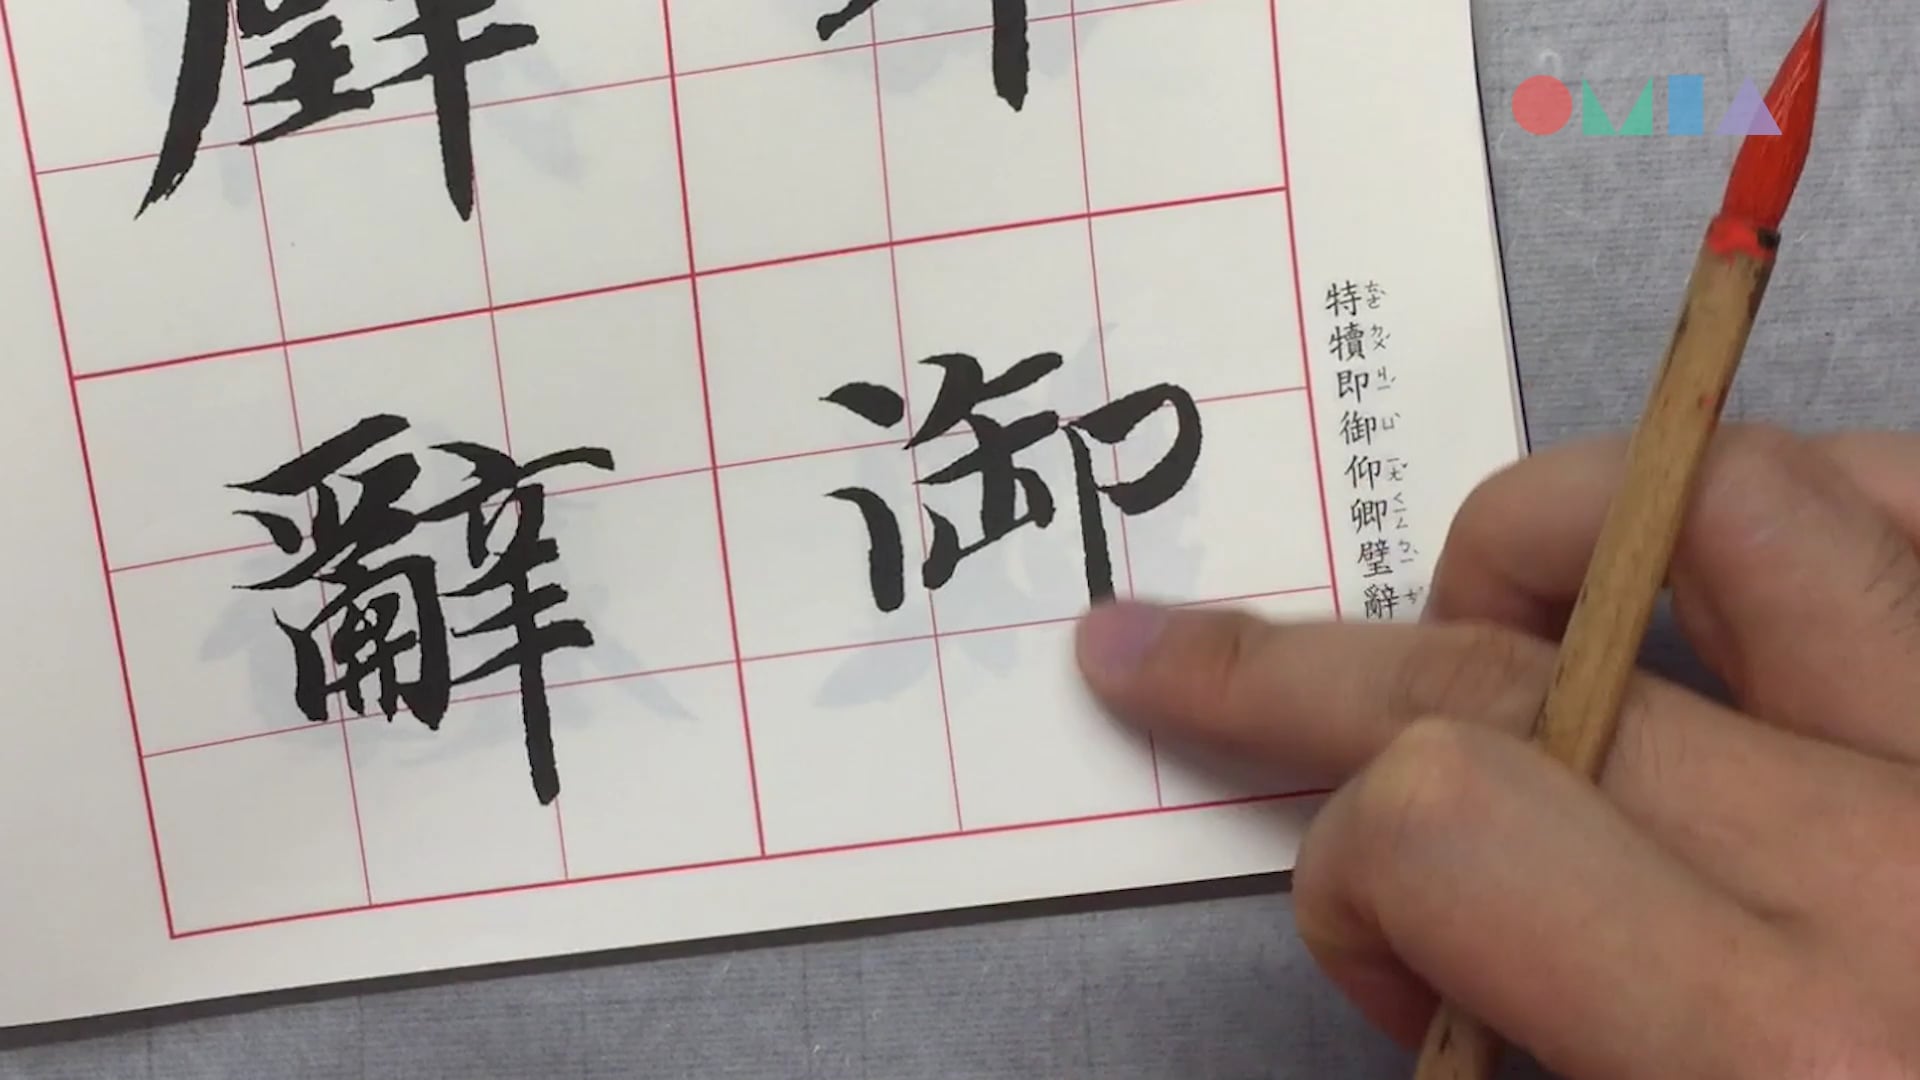 OMIA
御
璧
辭
特ㄊㄜˋ
犢ㄉㄨˊ
即ㄐㄧˊ
御ㄩˋ
仰ㄧㄤˇ
卿ㄑㄧㄥ
璧ㄅㄧˋ
辭ㄘˊ